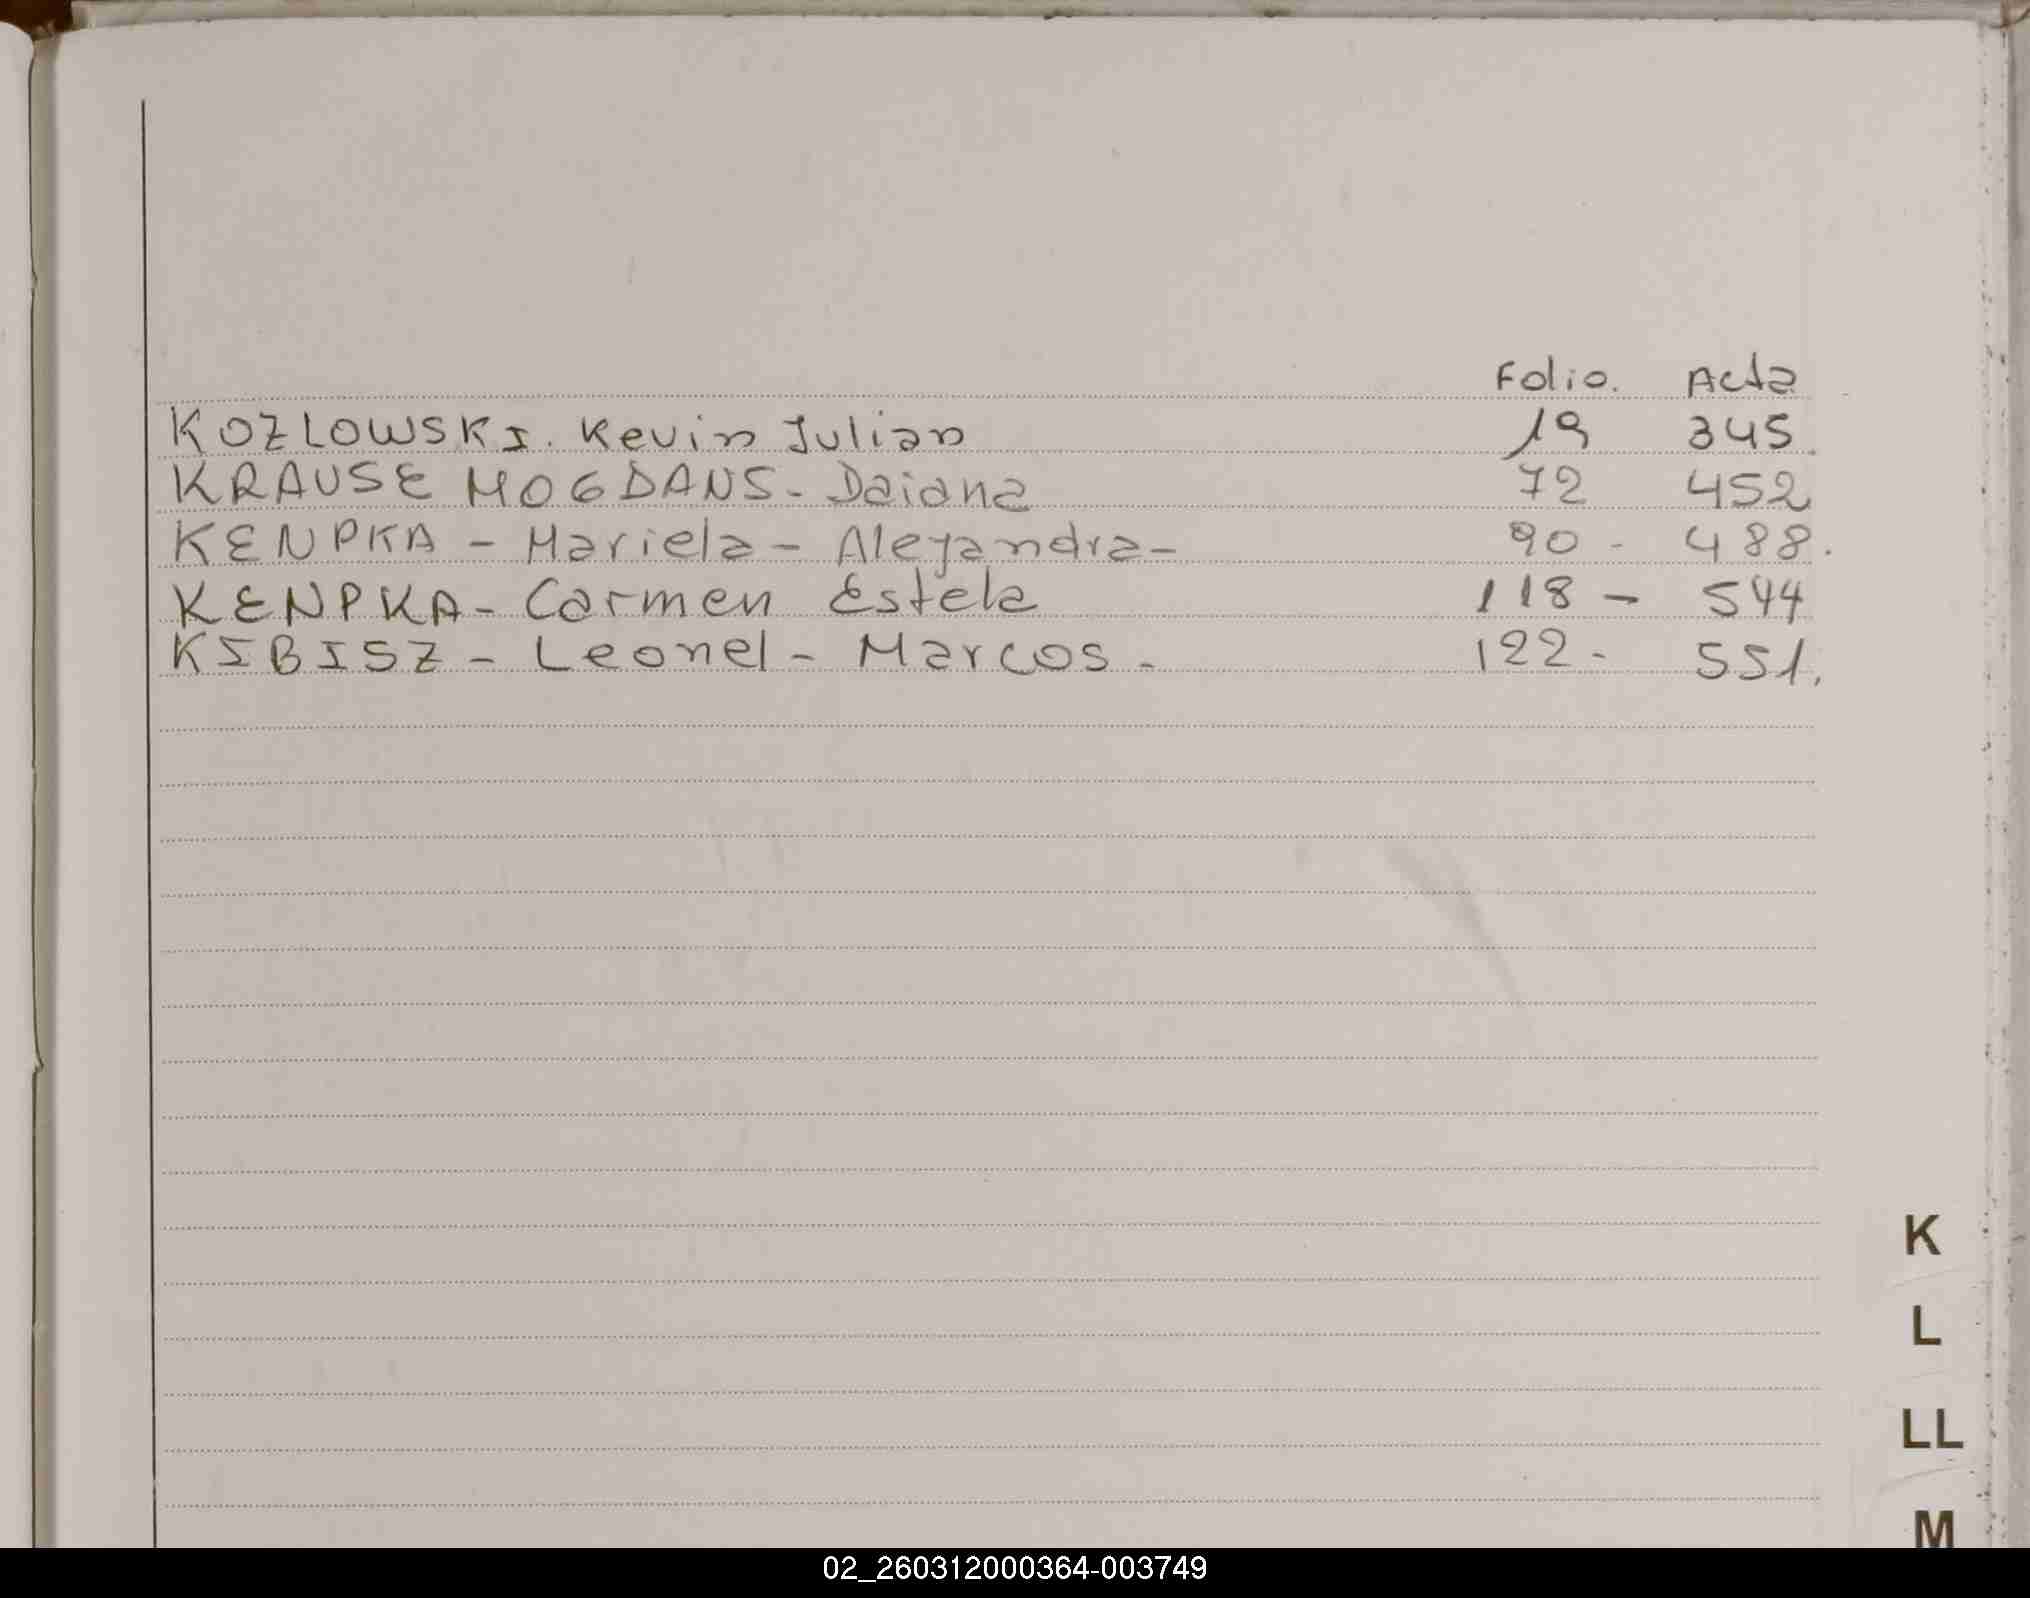 Folio. Acta
KOZLOWSKI. Kevin Julian 19 345.
KRAUSE MOGDANS - Daiana 72 452
KENPKA - Mariela - Alejandra - 90 - 488.
KENPKA - Carmen Estela 118 - 544
KIBISZ - Leonel - Marcos - 122 - 551.
K
L
LL
M
02_260312000364-003749